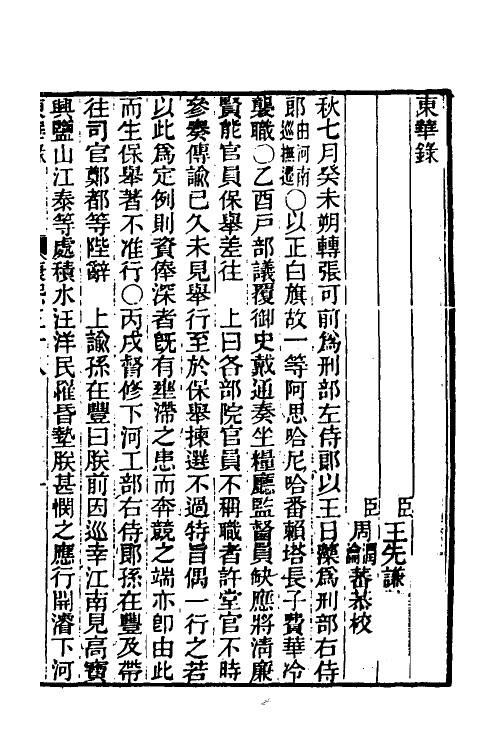 東華錄
臣王先謙
臣周潤蕃 瀹蕃恭校
秋七月癸未朔轉張可前爲刑部左侍郎以王日藻爲刑部右侍
郎由河南巡撫遷〇以正白旗故一等阿思哈尼哈番賴塔長子費華冷
襲職〇乙酉戸部議覆御史戴通奏坐糧廳監督員缺應將淸廉
賢能官員保舉差往 上曰各部院官員不稱職者許堂官不時
參奏傳諭已久未見舉行至於保舉揀選不過特旨偶一行之若
以此爲定例則資俸深者旣有壅滯之患而奔競之端亦卽由此
而生保舉著不准行〇丙戌督修下河工部右侍郎孫在豐及帶
往司官鄭都等陛辭 上諭孫在豐曰朕前因巡幸江南見高寶
興鹽山江泰等處積水汪洋民罹昏墊朕甚憫之應行開濬下河
東華錄 康熙三十八 一